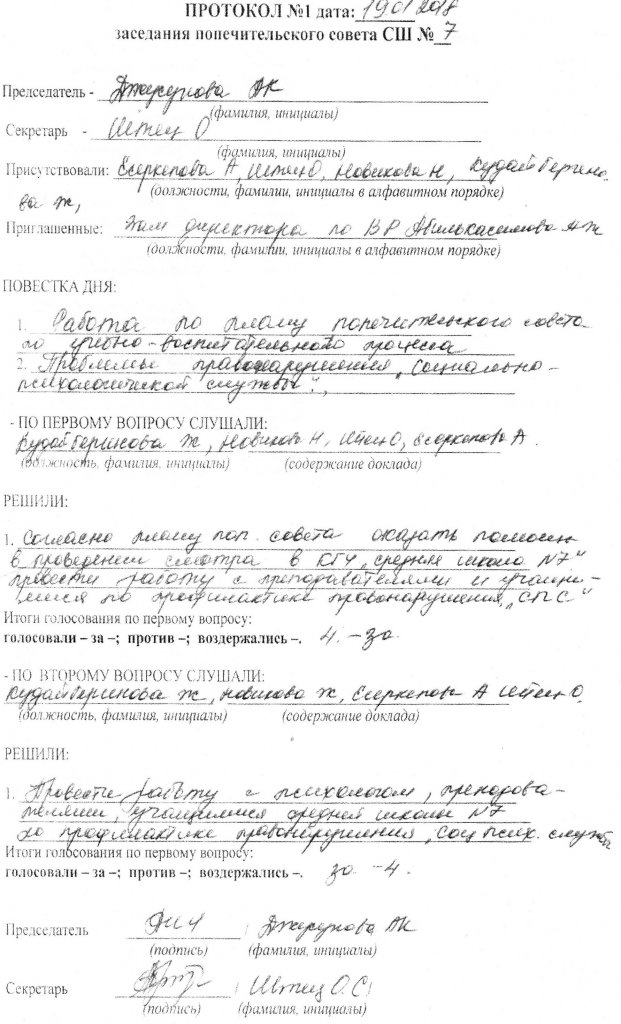 ПРОТОКОЛ №1 дата: 19 01 2018
заседания попечительского совета СШ № 7
Председатель - АК
(фамилия, инициалы)
Секретарь - Штец О
(фамилия, инициалы)
Присутствовали: Есеркепова А, Штец О, Новикова Н, Кудайберино
(должности, фамилии, инициалы в алфавитном порядке)
ва Ж,
Приглашенные: Зам директора по ВР Абилькасимова А.Ж
(должности, фамилии, инициалы в алфавитном порядке)
ПОВЕСТКА ДНЯ:
1. Работа по плану попечительского совета
по учебно-воспитательного процесса
2. Проблемы правонарушения „социально-
психологической службы".,
- ПО ПЕРВОМУ ВОПРОСУ СЛУШАЛИ:
Кудайберинова Ж, Новикова Н, Штец О, Есеркепова А.
(должность, фамилия, инициалы) (содержание доклада)
РЕШИЛИ:
1. Согласно плану поп. совета оказать помощь
в проведении смотра в КГУ „средняя школа №7"
провести работу с преподавателями и учащи-
мися по профилактике правонарушения „СПС"
Итоги голосования по первому вопросу:
голосовали – за –; против –; воздержались –. 4. – за
- ПО ВТОРОМУ ВОПРОСУ СЛУШАЛИ:
Кудайберинова Ж, Новикова Ж, Есеркепова А Штец О.
(должность, фамилия, инициалы) (содержание доклада)
РЕШИЛИ:
1. Провести работу с психологом, преподова-
телями, учащимися средней школы №7
по профилактике правонарушения „Соц псих. службы
Итоги голосования по первому вопросу:
голосовали – за –; против –; воздержались –. за – 4.
Председатель / АК
(подпись) (фамилия, инициалы)
Секретарь / Штец О.С/
(подпись) (фамилия, инициалы)